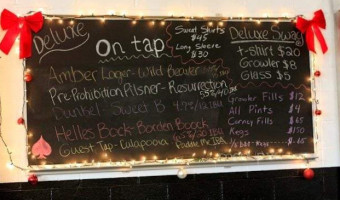 Deluxe
On tap
Sweat Shirts
$45
Long Sleeve
$30
Amber Lager - Wild Beaver
Pre Prohibition Pilsner - Resurrection
Dunkel - Sweet B
Helles Bock - Borden Boock
Guest Tap - Calapooia
Deluxe Swag
t-shirt $20
Growler $8
Glass $5
Growler Fills $12
All Pints $4
Corney Fills $65
Kegs $150